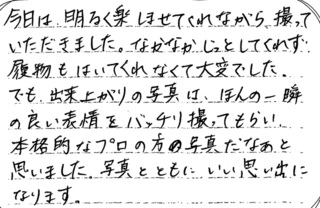 今日は、明るく楽しませてくれながら、撮って
いただきました。なかなかじっとしてくれず
履物もはいてくれなくて大変でした。
でも、出来上がりの写真は、ほんの一瞬
の良い表情をバッチリ撮ってもらい、
本格的なプロの方の写真だなあと
思いました。写真とともにいい思い出に
なります。